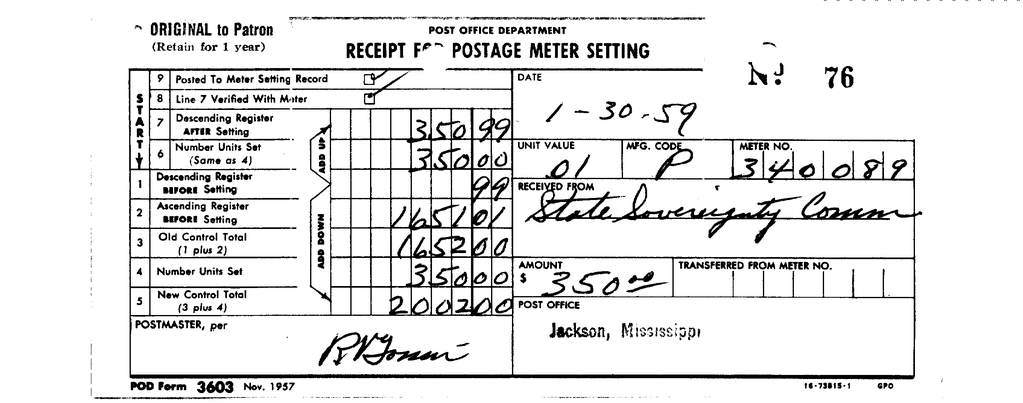 ORIGINAL to Patron
(Retain for 1 year)
POST OFFICE DEPARTMENT
RECEIPT FOR POSTAGE METER SETTING
No. 76
START
9 Posted To Meter Setting Record
8 Line 7 Verified With Meter
7 Descending Register AFTER Setting 350 99
6 Number Units Set (Same as 4) 350 00
1 Descending Register BEFORE Setting 99
2 Ascending Register BEFORE Setting 1651 01
3 Old Control Total (1 plus 2) 1652 00
4 Number Units Set 350 00
5 New Control Total (3 plus 4) 2002 00
ADD UP
ADD DOWN
POSTMASTER, per
DATE
1-30-59
UNIT VALUE
01
MFG. CODE
P
METER NO.
340089
RECEIVED FROM
State Sovereignty Comm
AMOUNT
$ 350 00
TRANSFERRED FROM METER NO.
POST OFFICE
Jackson, Mississippi
POD Form 3603 Nov. 1957
16-73815-1 GPO